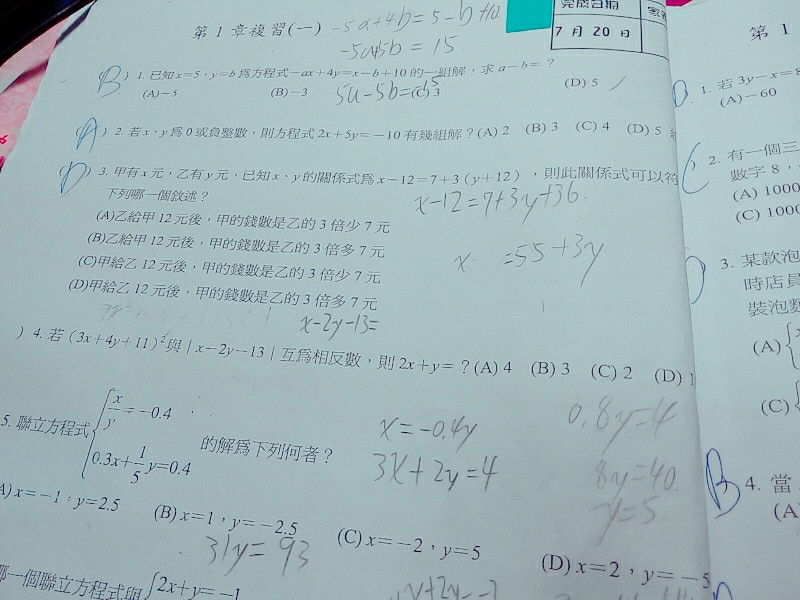 第 1 章複習(一)
-5a+4b=5-b+10
-5a+5b=15
完成日期
7 月 20 日
(B) 1. 已知 x=5、y=b 為方程式 -ax+4y=x-b+10 的一組解,求 a-b=?
(A)-5 (B)-3 (C) 3 (D) 5
(A) 2. 若 x、y 為 0 或負整數,則方程式 2x+5y=-10 有幾組解?(A) 2 (B) 3 (C) 4 (D) 5
(D) 3. 甲有 x 元,乙有 y 元,已知 x、y 的關係式為 x-12=7+3(y+12),則此關係式可以符
下列哪一個敘述?
x-12=7+3y+36
(A)乙給甲 12 元後,甲的錢數是乙的 3 倍少 7 元
(B)乙給甲 12 元後,甲的錢數是乙的 3 倍多 7 元
(C)甲給乙 12 元後,甲的錢數是乙的 3 倍少 7 元
x =55+3y
(D)甲給乙 12 元後,甲的錢數是乙的 3 倍多 7 元
x-2y-13=
) 4. 若 (3x+4y+11)²與|x-2y-13|互為相反數,則 2x+y=?(A) 4 (B) 3 (C) 2 (D) 1
5. 聯立方程式 { x/y=-0.4
0.3x+1/5y=0.4 的解為下列何者?
x=-0.4y
3x+2y=4
0.8y=4
8y=40
y=5
A) x=-1,y=2.5 (B) x=1,y=-2.5 (C) x=-2,y=5 (D) x=2,y=-5
31y=93
哪一個聯立方程式與 { 2x+y=-1
第 1
1. 若 3y-x=8
(A)-60
2. 有一個三
數字 8,
(A) 1000
(C) 1000
3. 某款泡
時店員
裝泡數
(A)
(C)
B 4. 當
(A